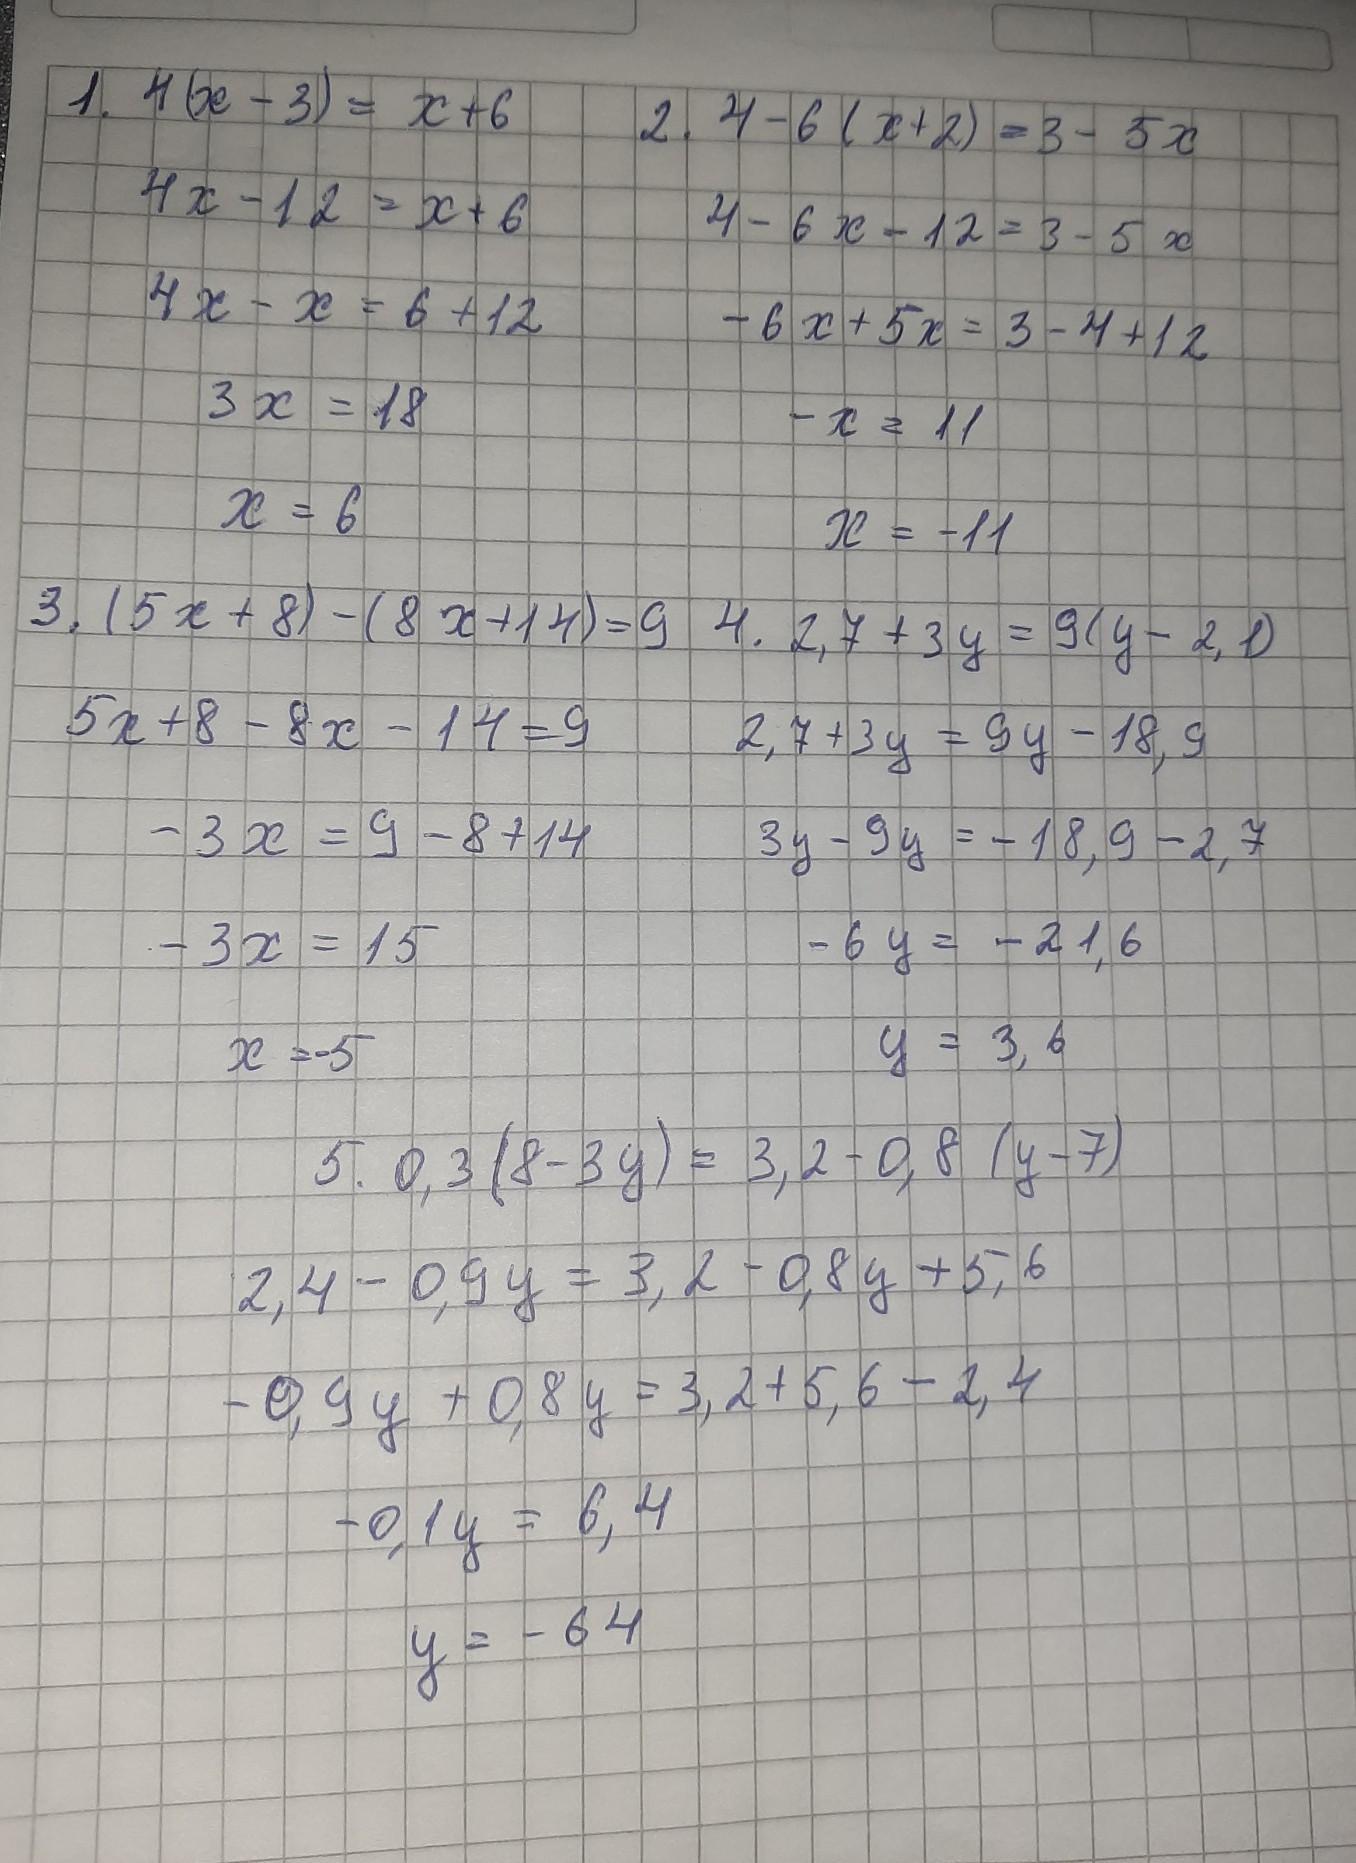 1. 4(x - 3) = x + 6
4x - 12 = x + 6
4x - x = 6 + 12
3x = 18
x = 6
2. 4 - 6(x + 2) = 3 - 5x
4 - 6x - 12 = 3 - 5x
-6x + 5x = 3 - 4 + 12
-x = 11
x = -11
3. (5x + 8) - (8x + 14) = 9
5x + 8 - 8x - 14 = 9
-3x = 9 - 8 + 14
-3x = 15
x = -5
4. 2,7 + 3y = 9(y - 2,1)
2,7 + 3y = 9y - 18,9
3y - 9y = -18,9 - 2,7
-6y = -21,6
y = 3,6
5. 0,3(8 - 3y) = 3,2 - 0,8(y - 7)
2,4 - 0,9y = 3,2 - 0,8y + 5,6
-0,9y + 0,8y = 3,2 + 5,6 - 2,4
-0,1y = 6,4
y = -64